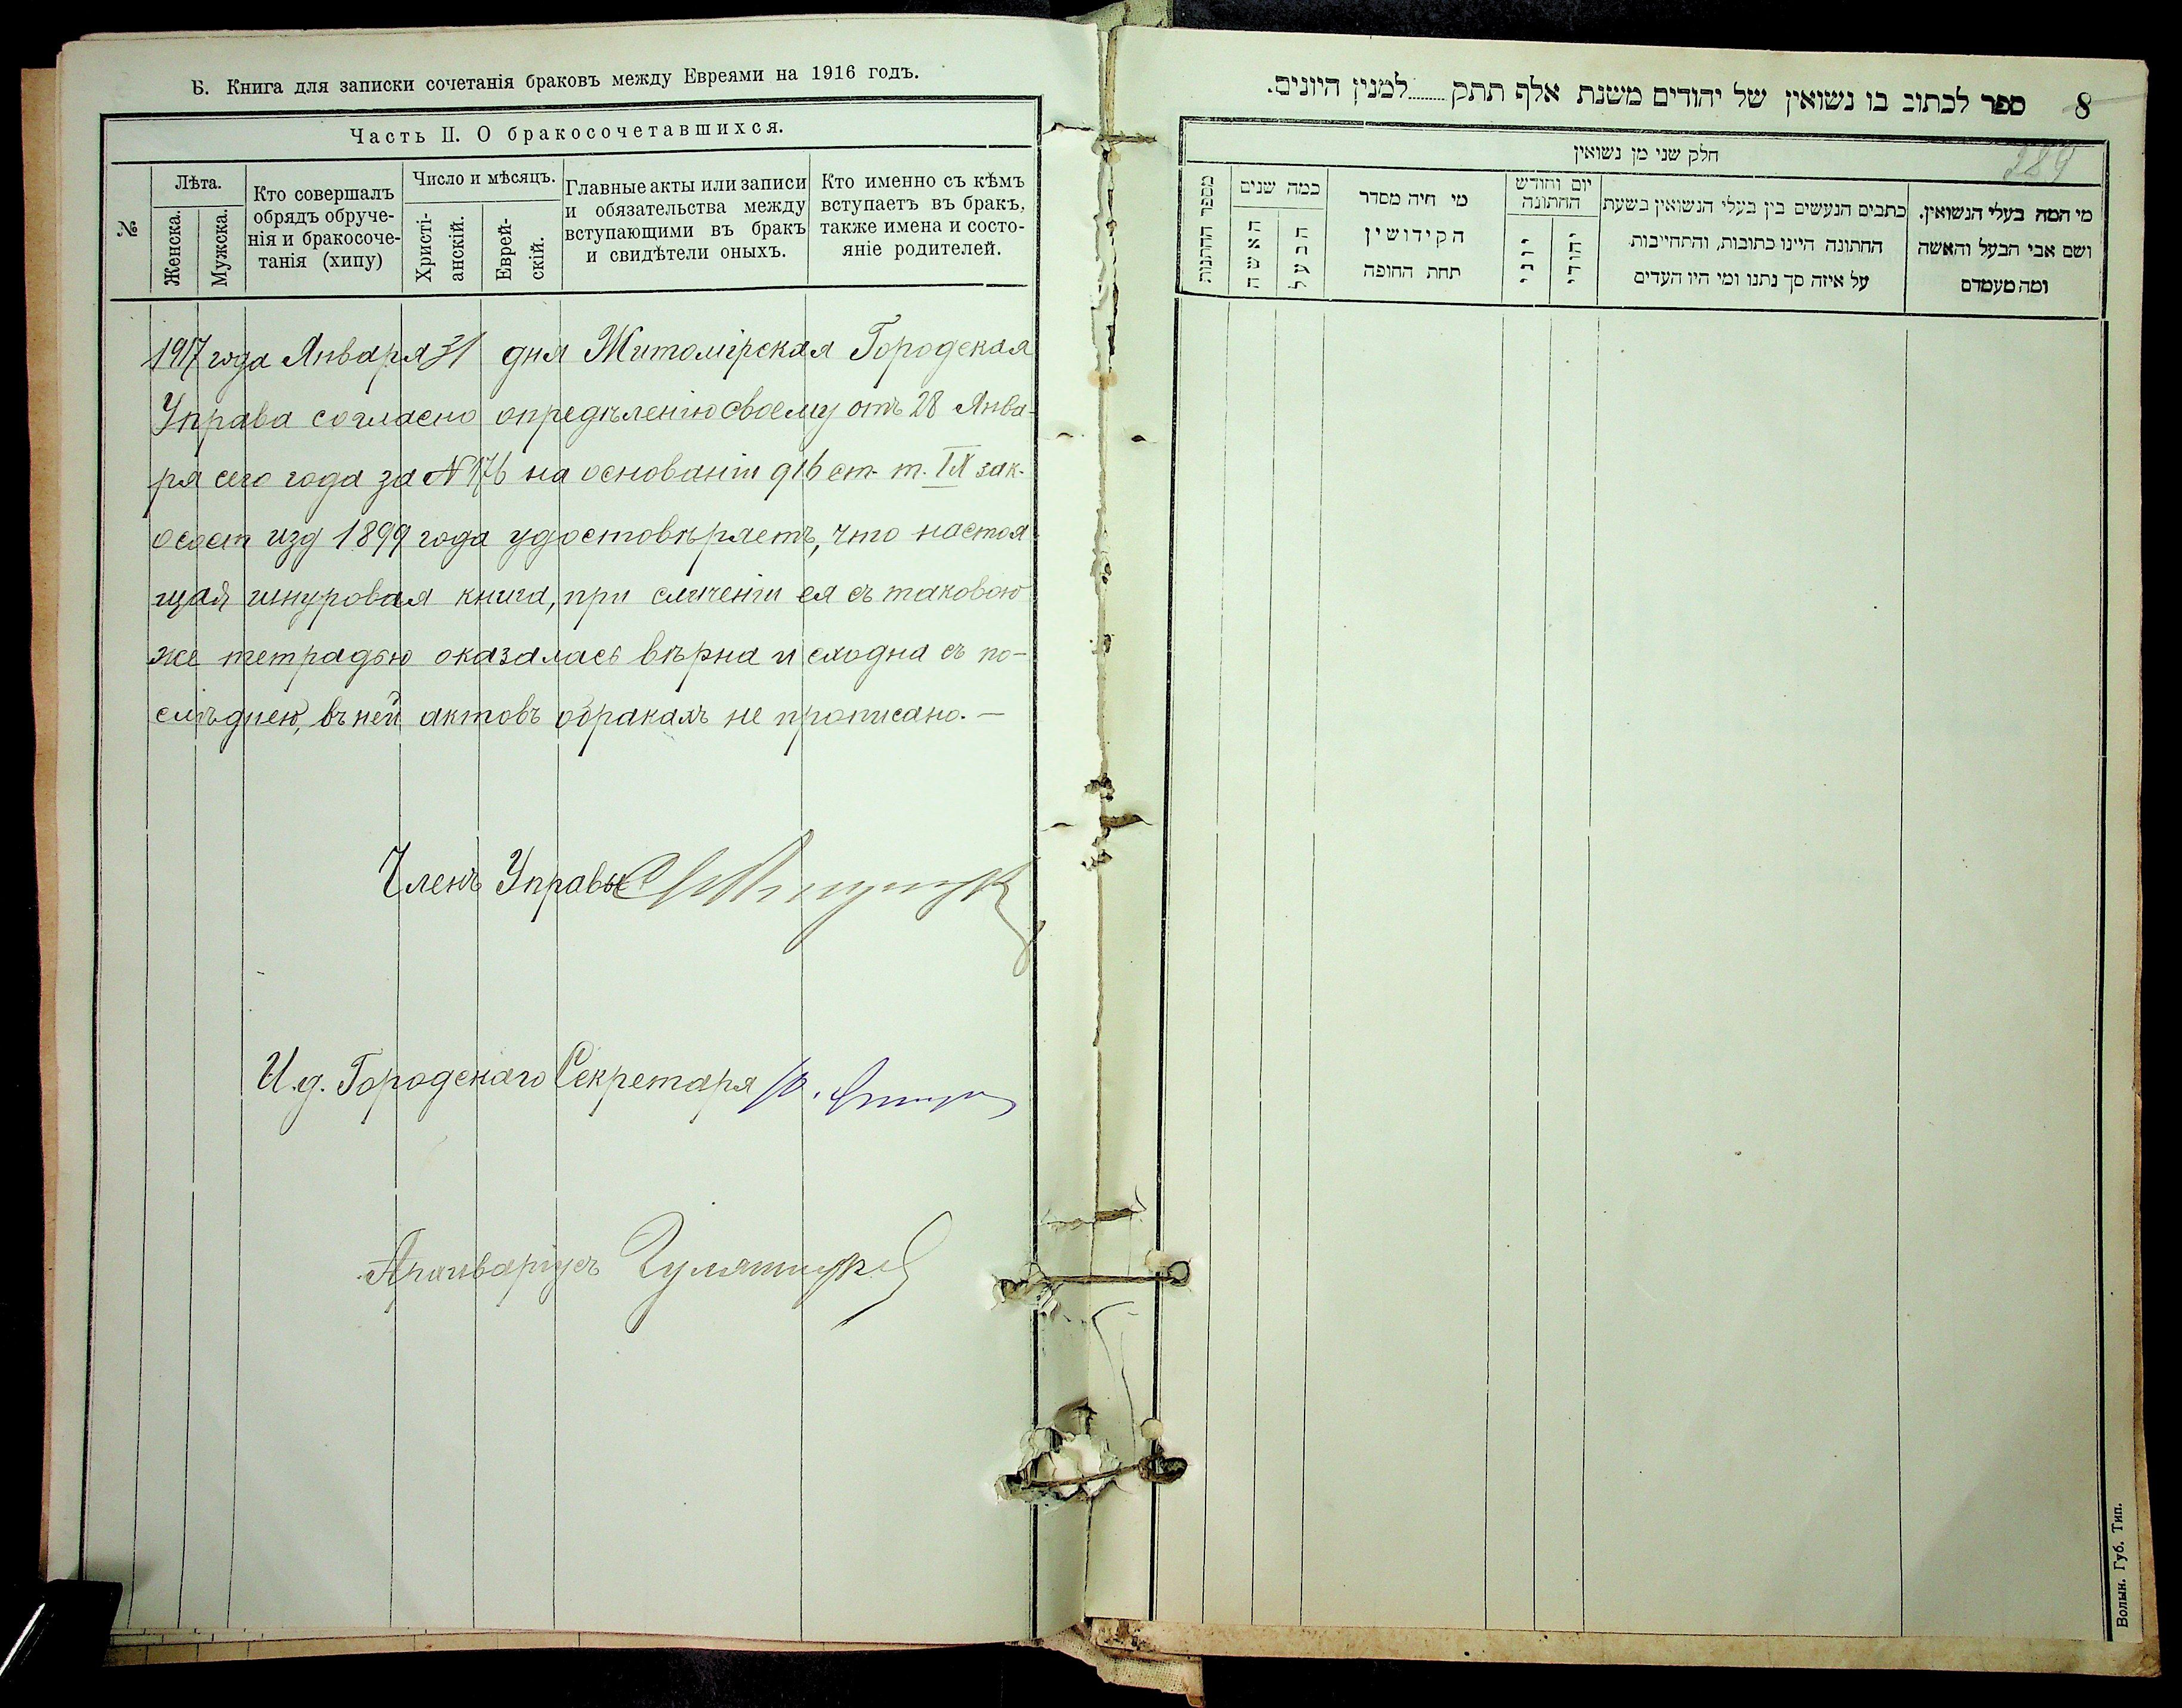 Б. Книга для записки сочетанія браковъ между Евреями на 1916 годъ.
Часть II. О бракосочетавшихся.
№
Лѣта.
Женска.
Мужска.
Кто совершалъ
обрядъ обруче-
нія и бракосоче-
танія (хипу)
Число и мѣсяцъ.
Христі-
анскій.
Еврей-
скій.
Главные акты или записи
и обязательства между
вступающими въ бракъ
и свидѣтели оныхъ.
Кто именно съ кѣмъ
вступаетъ въ бракъ,
также имена и состо-
яніе родителей.
1917 года Января 31 дня Житомірская Городская
Управа согласно опредѣленію своему отъ 28 Янва-
ря сего года за № 176 на основаніи 916 ст. т. IX зак.
о сост изд 1899 года удостовѣряетъ, что настоя
щая шнуровая книга, при сличеніи ея съ таковою
же тетрадью оказалась вѣрна и сходна съ по-
слѣднею, въ ней актовъ о бракахъ не прописано. —
Членъ Управы
И.д. Городскаго Секретаря
Архиваріусъ
ספר לכתוב בו נשואין של יהודים משנת אלף תתק........למנין היונים.
8
289
חלק שני מן נשואין
מספר החתונות
כמה שנים
האשה
הבעל
מי היה מסדר
הקידושין
תחת החופה
יום וחודש
החתונה
יוני
יהודי
כתבים הנעשים בין בעלי הנשואין בשעת
החתונה היינו כתובות, והתחייבות
על איזה סך נתנו ומי היו העדים
מי המה בעלי הנשואין.
ושם אבי הבעל והאשה
ומה מעמדם
Волын. Губ. Тип.